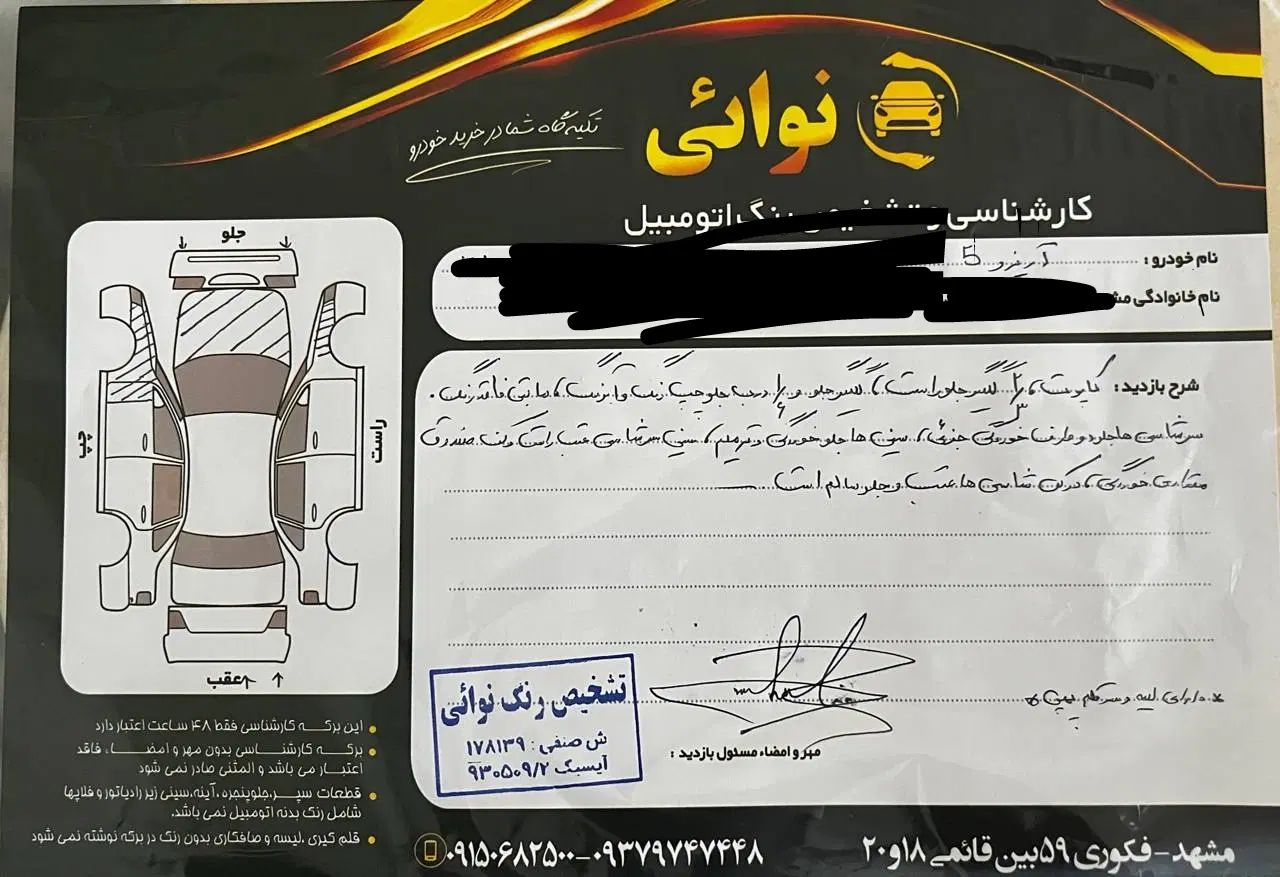 نوائی
تکیه گاه شما در خرید خودرو
کارشناسی و تشخیص رنگ اتومبیل
نام خودرو : آریزو 5
نام خانوادگی
شرح بازدید : کاپوت، گلگیر جلو راست، گلگیر جلو و درب جلو چپ رنگ و آبرنگ، مابقی فاقد رنگ.
سرشاسی ها جلو دو طرف خوردگی جزئی، سینی ها جلو خوردگی و ترمیم، سینی سرشاسی عقب راست و کف صندوق
مقداری خوردگی، ستون شاسی ها عقب و جلو سالم است
* دارای لیسه و سرقلم *
مهر و امضاء مسئول بازدید :
تشخیص رنگ نوائی
ش صنفی : ۱۷۸۱۳۹
آیسیک ۹۳۰۵۰۹/۲
جلو
چپ
راست
عقب
این برگه کارشناسی فقط ۴۸ ساعت اعتبار دارد
برگه کارشناسی بدون مهر و امضاء، فاقد
اعتبار می باشد و المثنی صادر نمی شود
قطعات سپر، جلوپنجره، آینه، سینی زیر رادیاتور و فلاپها
شامل رنگ بدنه اتومبیل نمی باشد.
قلم گیری، لیسه و صافکاری بدون رنگ در برگه نوشته نمی شود
مشهد - فکوری ۵۹ بین قائمی ۱۸ و ۲۰
۰۹۱۵۰۶۸۲۵۰۰ - ۰۹۳۷۹۷۴۷۴۴۸